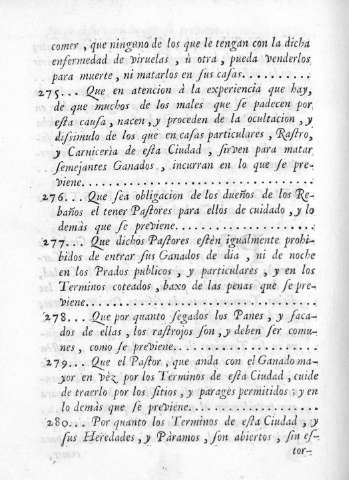 comer, que ninguno de los que le tengan con la dicha
enfermedad de viruelas, ù otra, pueda venderlos
para muerte, ni matarlos en sus casas..........
275... Que en atencion à la experiencia que hay,
de que muchos de los males que se padecen por
esta causa, nacen, y proceden de la ocultacion, y
dissimulo de los que en casas particulares, Rastro,
y Carniceria de esta Ciudad, sirven para matar
semejantes Ganados, incurran en lo que se pre-
viene........................................
276... Que sea obligacion de los dueños de los Re-
baños el tener Pastores para ellos de cuidado, y lo
demàs que se previene......................
277... Que dichos Pastores estèn igualmente prohi-
bidos de entrar sus Ganados de dia, ni de noche
en los Prados publicos, y particulares, y en los
Terminos coteados, baxo de las penas que se pre-
viene........................................
278... Que por quanto segados los Panes, y saca-
dos de ellas, los rastrojos son, y deben ser comu-
nes, como se previene......................
279... Que el Pastor, que anda con el Ganado ma-
yor en vèz por los Terminos de esta Ciudad, cuide
de traerlo por los sitios, y parages permitidos; y en
lo demàs que se previene....................
280... Por quanto los Terminos de esta Ciudad, y
sus Heredades, y Pàramos, son abiertos, sin es-
tor-